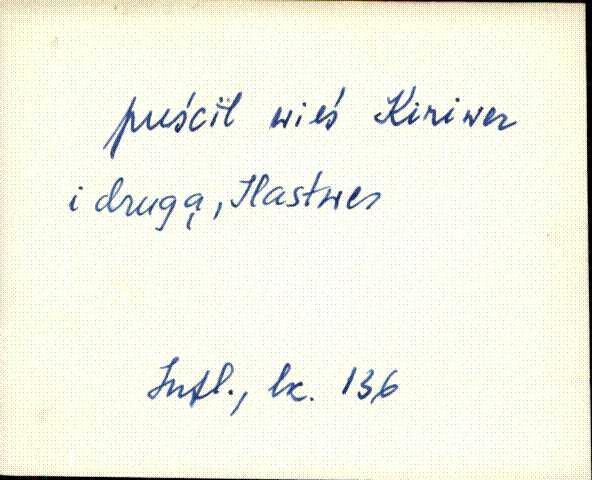 puścił wieś Kiriwer
i drugą, Ilastwer
Infl., k. 136